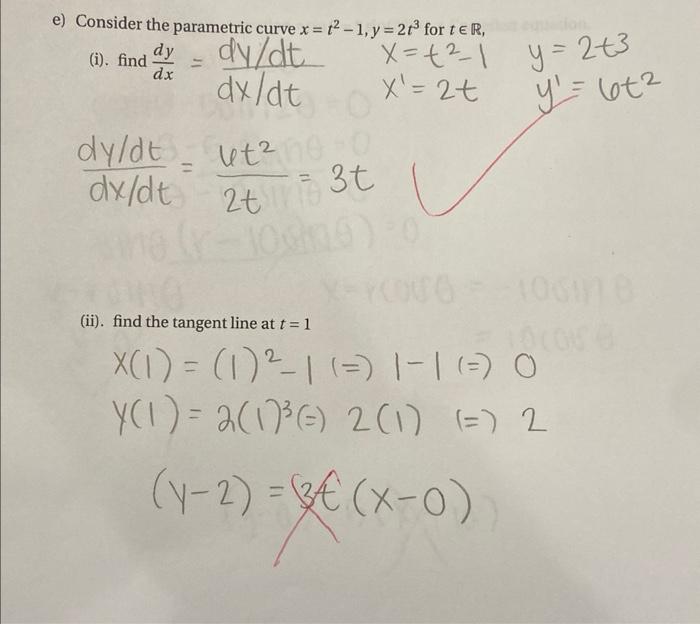 e) Consider the parametric curve x = t² – 1, y = 2t³ for t ∈ ℝ,
(i). find dy/dx = dy/dt / dx/dt x = t² - 1 y = 2t3
x' = 2t y' = 6t²
dy/dt / dx/dt = 6t² / 2t = 3t
(ii). find the tangent line at t = 1
x(1) = (1)² - 1 (=) 1 - 1 (=) 0
y(1) = 2(1)³ (=) 2(1) (=) 2
(y-2) = 3t (x-0)